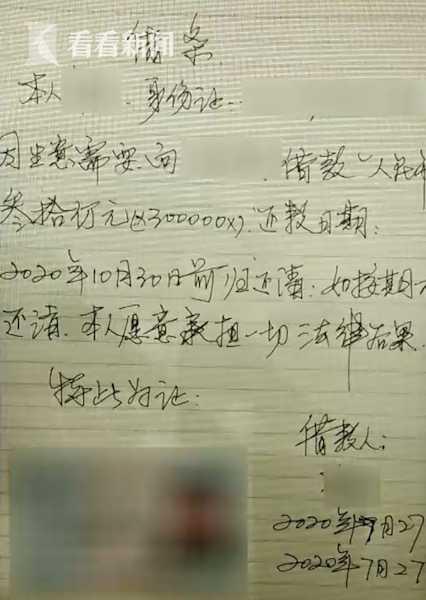 看看新闻
借条
本人 身份证:
因生意需要向 借款人民币
叁拾万元(¥300000x).还款日期:
2020年10月30日前归还清:如按期不
还清.本人愿意承担一切法律后果.
特此为证:
借款人:
2020年7月27
2020年7月27